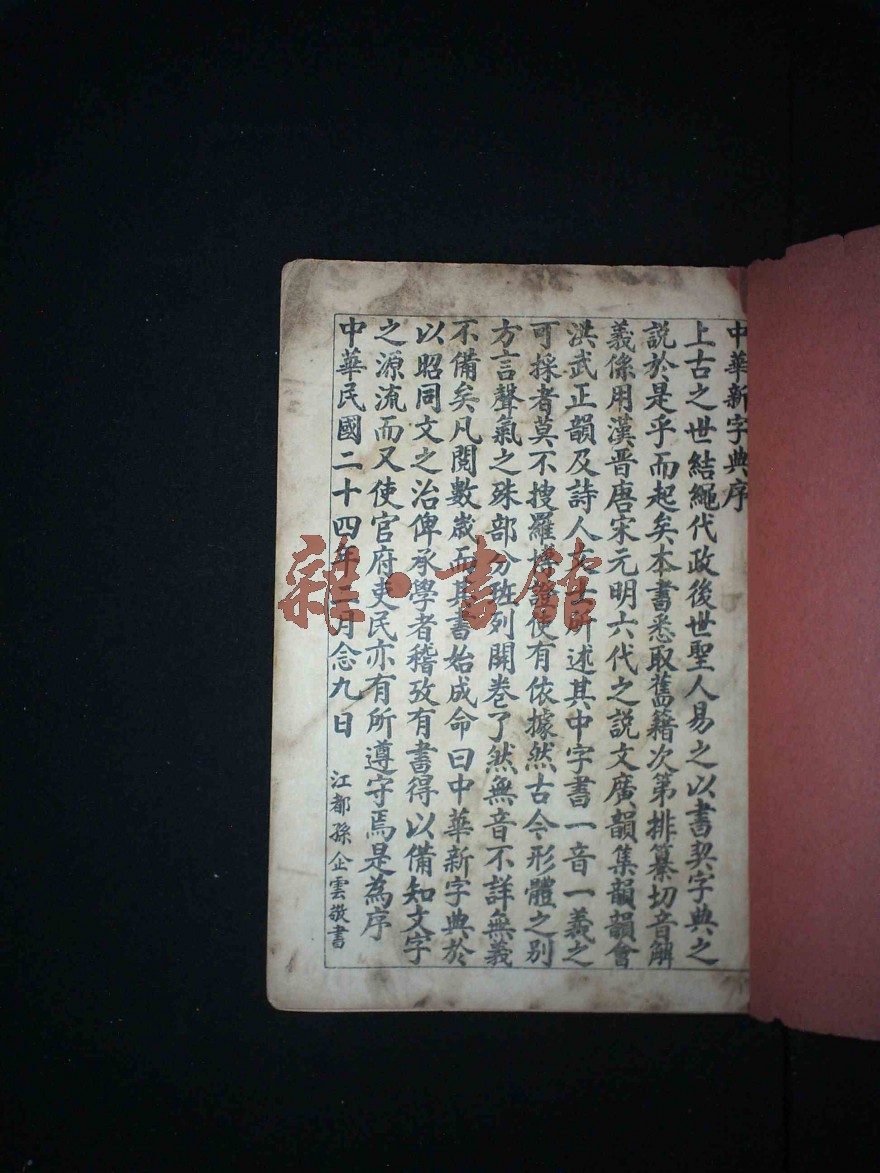 中華新字典序
上古之世結繩代政後世聖人易之以書契字典之
説於是乎而起矣本書悉取舊籍次第排纂切音解
義係用漢晋唐宋元明六代之説文廣韻集韻韻會
洪武正韻及詩人文士所述其中字書一音一義之
可採者莫不搜羅棪證使有依據然古今形體之别
方言聲氣之殊部分班列開卷了然無音不詳無義
不備矣凡閱數歲而其書始成命曰中華新字典於
以昭同文之治俾承學者稽攷有書得以備知文字
之源流而又使官府吏民亦有所遵守焉是為序
中華民國二十四年二月念九日 江都孫企雲敬書
雜·書館